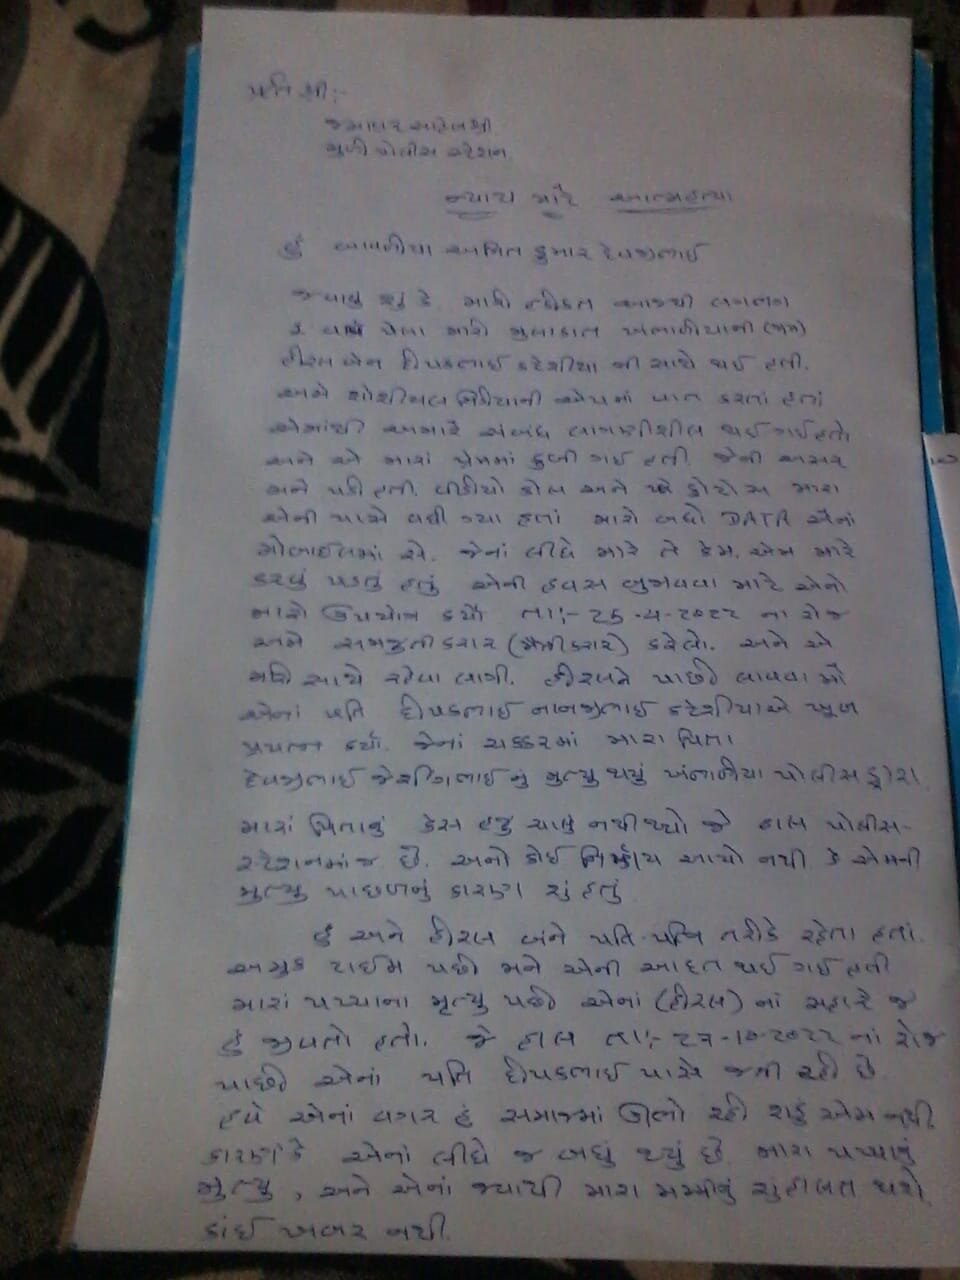 પ્રતિ શ્રી:-
જમાદાર સાહેબશ્રી
મુળી પોલીસ સ્ટેશન
ન્યાય માટે આત્મહત્યા
હું અમિત કુમાર દેવજીભાઈ
જણાવું છું કે મારી હકીકત આજથી લગભગ
પેલા મારી મુલાકાત ખંભાળીયાની (ગામ)
હીરલ બેન દીપકભાઈ કટેશીયા ની સાથે થઈ હતી.
અમે શોશીયલ મિડિયાની એપમાં વાત કરતાં હતાં
એમાંથી અમારે સંબંધ લાગણીશીલ થઈ ગઈ હતો
અને એ મારાં પ્રેમમાં ડુબી ગઈ હતી. જેની અસર
મને પડી હતી. વીડીયો કોલ અને ફોટોસ મારા
એની પાસે વધી ગ્યા હતાં મારો બધો DATA એનાં
મોબાઈલમાં છે. જેનાં લીધે મારે તે કેમ. એમ મારે
કરવું પડતું હતું એની હવસ બુજાવવા માટે એનો
મારો ઉપયોગ કર્યો તા:- ૨૬-૫-૨૦૨૨ ના રોજ
અમે સમજુતી કરાર (મૈત્રી કરાર) કરેલો. અને એ
મારી સાથે રહેવા લાગી. હીરલને પાછી લાવવા માં
એનાં પતિ દીપકભાઈ નાનજીભાઈ કટેશીયાએ ખૂબ
પ્રયત્ન કર્યો. જેનાં ચક્કરમાં મારા પિતા
દેવજીભાઈ જેશીંગભાઈ નું મુત્યુ થયું ખંભાળીયા પોલીસ દ્વારા.
મારાં પિતાનું કેસ હજું ચાલું નથી થયો જે હાલ પોલીસ-
સ્ટેશનમાં જ છે. એનો કોઈ નિર્ણય આયો નથી કે એમની
મુત્યુ પાછળનું કારણ શું હતું
હું અને હીરલ બંને પતિ-પત્નિ તરીકે રહેતા હતાં.
અમુક ટાઈમ પછી મને એની આદત થઈ ગઈ હતી
મારાં પપ્પાના મૃત્યુ પછી એનાં (હીરલ) નાં સહારે જ
હું જીવતો હતો. જે હાલ તા:- ૨૭-૧૦-૨૦૨૨ નાં રોજ
પાછી એનાં પતિ દીપકભાઈ પાસે જતી રહી છે.
હવે એનાં વગર હું સમાજમાં ઉભો રહી શકું એમ નથી
કારણ કે એનાં લીધે જ બધું થયું છે. મારા પપ્પાનું
મુત્યુ, અને એનાં જવાથી મારા મમ્મીનું શું હાલત થશે
કાંઈ ખબર નથી.